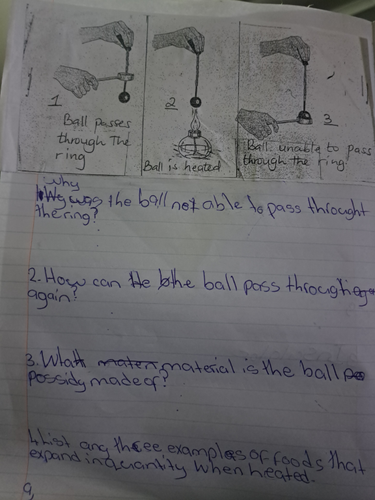 1
Ball passes
through The
ring
2
Ball is heated
3
Ball unable to pass
through the ring
Why
was the ball not able to pass throught
the ring?
2. How can the ball pass through
again?
3. What material is the ball
possidy made of?
List any three examples of foods that
expand in quantity when heated.